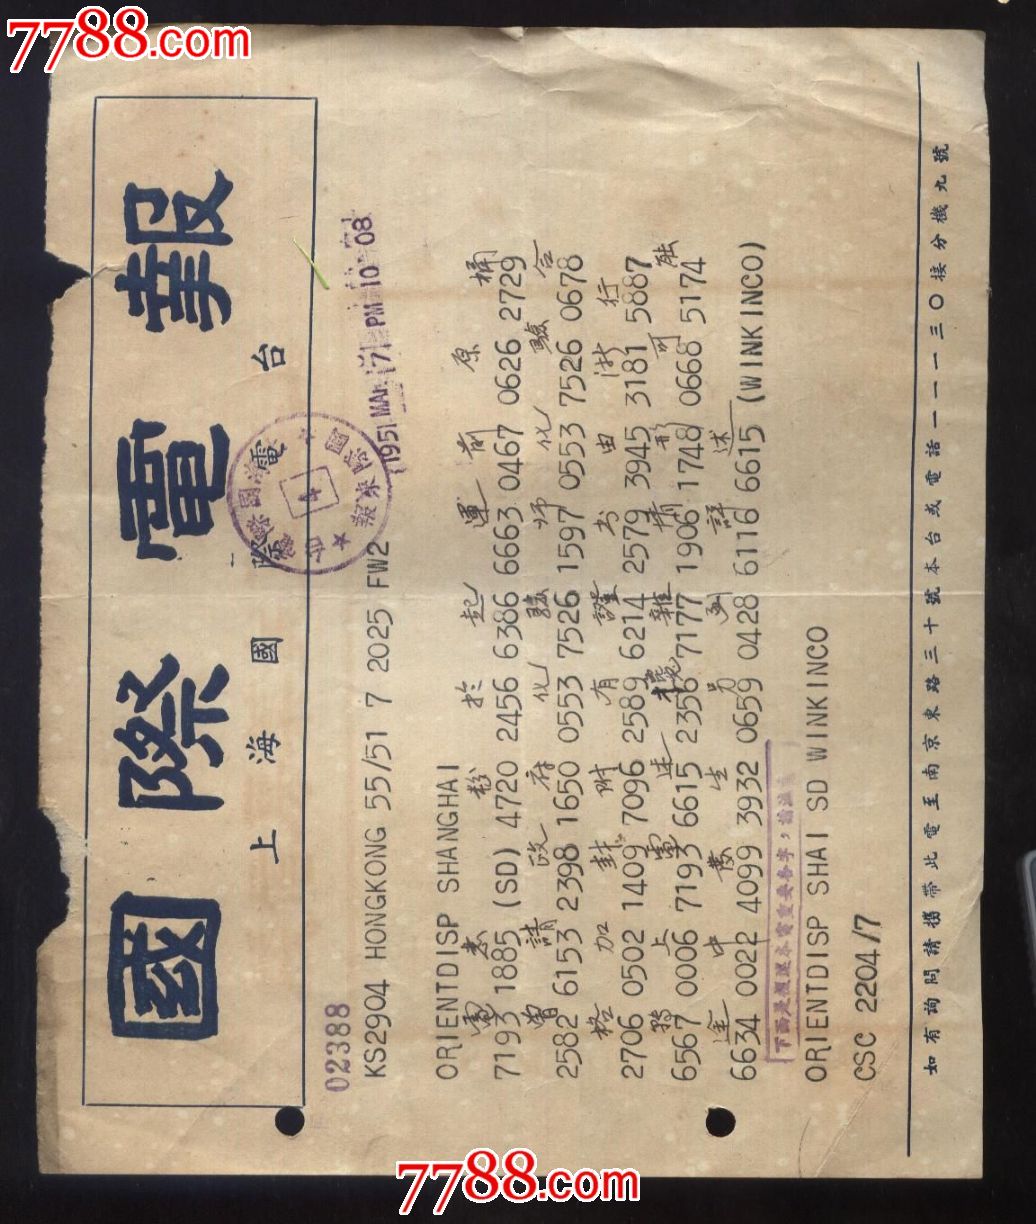 7788.com
國際電報
上海國際電台
02388
KS2904 HONGKONG 55/51 7 2025 FW2
1951 MAR 7 PM 10 08
ORIENTDISP SHANGHAI
7193 1885 (SD) 4720 2456 6386 6663 0467 0626 2729
電悉 粉於起運前原桶
2582 6153 2398 1650 0553 7526 1597 0553 7526 0678
曾請政府化驗師化驗合
2706 0502 1409 7096 2589 6214 2579 3945 3181 5887
格加 附有證書由浙行
6567 0006 7193 6615 2356 7177 1906 1748 0668 5174
上電述 雜情形可融
6634 0022 4099 3932 0659 0428 6116 6615 (WINKINCO)
途中發生另函詳述
ORIENTDISP SHAI SD WINKINCO
CSC 2204/7
如有詢問請攜帶此電至南京東路三十號本台或電話一一一三〇接分機九號
7788.com